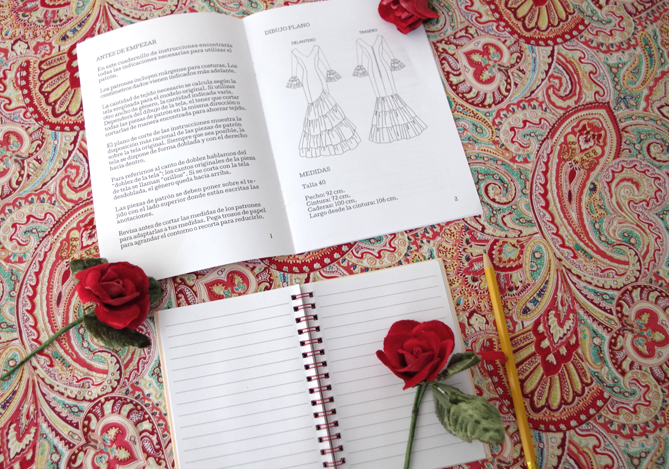 ANTES DE EMPEZAR
En este cuadernillo de instrucciones encontrarás
todas las indicaciones necesarias para utilizar el
patrón.
Los patrones incluyen márgenes para costuras. Los
combinados que vienen indicados más adelante.
La cantidad de tejido necesario se calcula según la
tela empleada para el modelo original. Si utilizas
otro ancho de género, la cantidad indicada varía.
Dependerá del dibujo de la tela, el tener que cortar
todas las piezas de patrón en la misma dirección o
cortarlas de manera encontrada para ahorrar tejido.
El plano de corte de las instrucciones muestra la
disposición más racional de las piezas de patrón
sobre la tela original. Siempre que sea posible, la
tela se dispone de forma doblada y con el derecho
hacia dentro.
Para referirnos al canto de doblez hablamos del
"doblez de la tela"; los cantos originales de la pieza
de tela se llaman "orillos". Si se corta con la tela
desdoblada, el género queda hacia arriba.
Las piezas de patrón se deben poner sobre el te-
jido con el lado superior donde están escritas las
anotaciones.
Revisa antes de cortar las medidas de los patrones
para adaptarlas a tus medidas. Pega trozos de papel
para agrandar el contorno o recorta para reducirlo.
1
DIBUJO PLANO
DELANTERO
TRASERO
MEDIDAS
Talla 40
Pecho: 92 cm.
Cintura: 72 cm.
Caderas: 100 cm.
Largo desde la cintura: 106 cm.
2